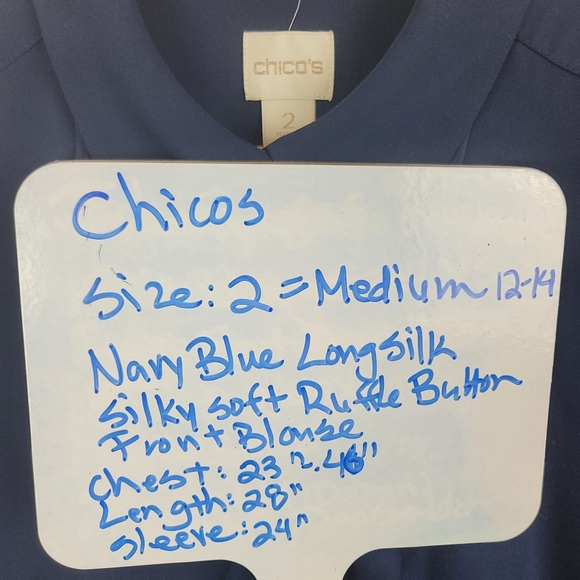 chico's
2
Chicos
Size: 2 = Medium 12-14
Navy Blue Long Silk
Silky Soft Ruffle Button
Front Blouse
Chest: 23" 46"
Length: 28"
Sleeve: 24"